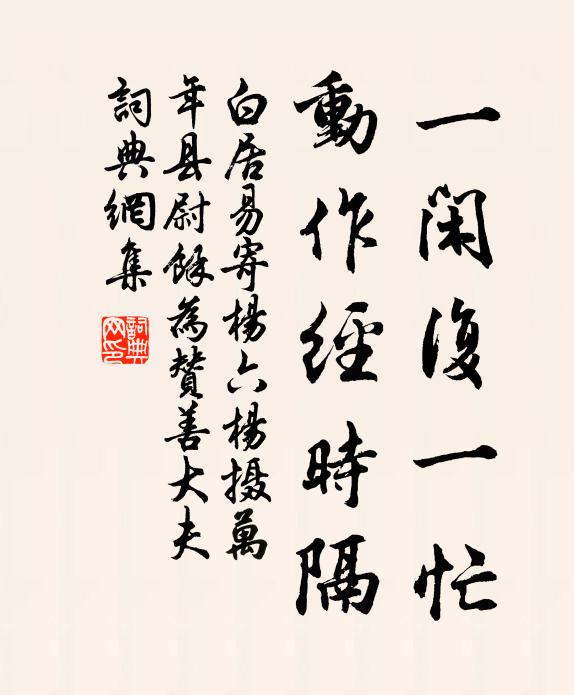 一閑復一忙
動作經時隔
白居易寄楊六楊摄萬
年县尉餘為贊善大夫
詞典網集
詞典网印